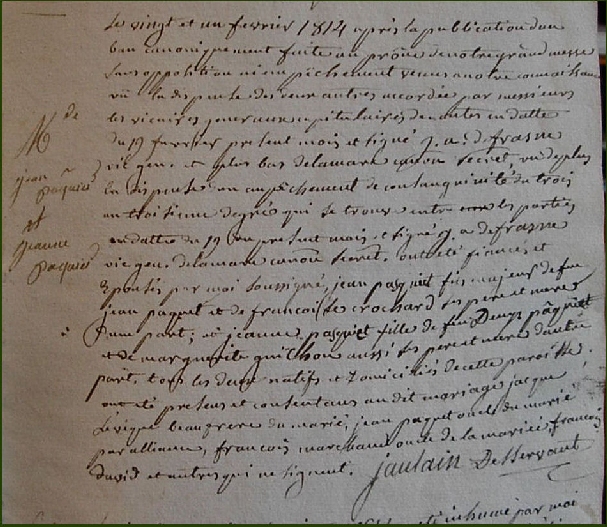 Le vingt et un fevrier 1814 après la publication d'un
ban canoniquement faite au prône de notre grand messe
sans opposition ni empêchement venus a notre connaissance
vû la dispense des deux autres accordée par messieurs
les vicaires généraux capitulaires de nantes en datte
du 19 fevrier present mois et signé j. a. d. frasne
vic. gen. et plus bas delamare secret, vu de plus
la dispense d'un empêchement de consanguinité du trois
au troisieme degré qui se trouve entre les parties
en datte du 19 du present mois et signé j. a. defrasne
vic. gen. delamare secret. ont été fiancés et
Epousés par moi soussigné, jean pasquet fils majeur de feu
jean paquet et de francoise crochard ses pere et mere
d'une part; et jeanne pasquet fille de feu Denys pâquet
et de marguerite aussi ses pere et mere d'autre
part, tous les deux natifs et domiciliés de cette paroisse.
ont été presens et consentans au dit mariage jacque
Lévêque beaufrere du marié, jean paquet oncle du marié
par alliance, francois marchand oncle de la mariée, francois
david et autres qui ne signent. jaulain Desservant
M de
jean
paquet
et
jeanne
paquet
inhumé par moi